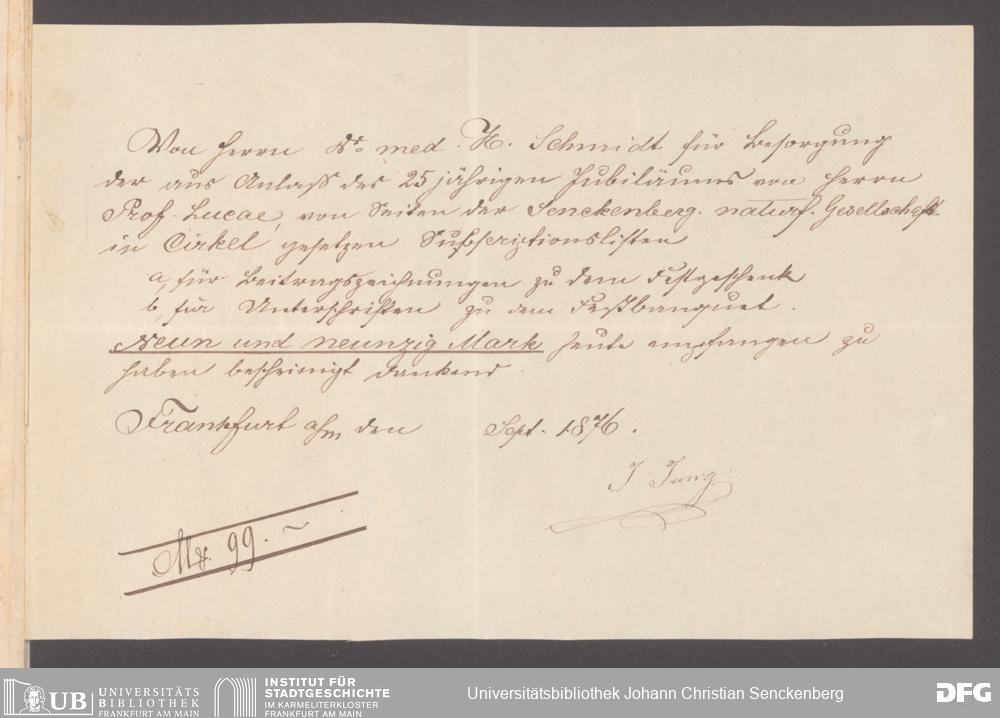 Von Herrn Dr. med. H. Schmidt für Besorgung
der aus Anlaß des 25 jährigen Jubiläums von Herrn
Prof. Lucae, von Seiten der Senckenberg. naturf. Gesellschaft
in Cirkel gesetzen Subscriptionslisten
a, für Beitragszeichnungen zu dem Festgeschenk
b, für Unterschriften zu dem Festbanquet.
Neun und neunzig Mark heute empfangen zu
haben bescheinigt dankend
Frankfurt a/m den Sept. 1876.
J Jung
Mk. 99. ~
UB UNIVERSITÄTS
BIBLIOTHEK
FRANKFURT AM MAIN
INSTITUT FÜR
STADTGESCHICHTE
IM KARMELITERKLOSTER
FRANKFURT AM MAIN
Universitätsbibliothek Johann Christian Senckenberg
DFG